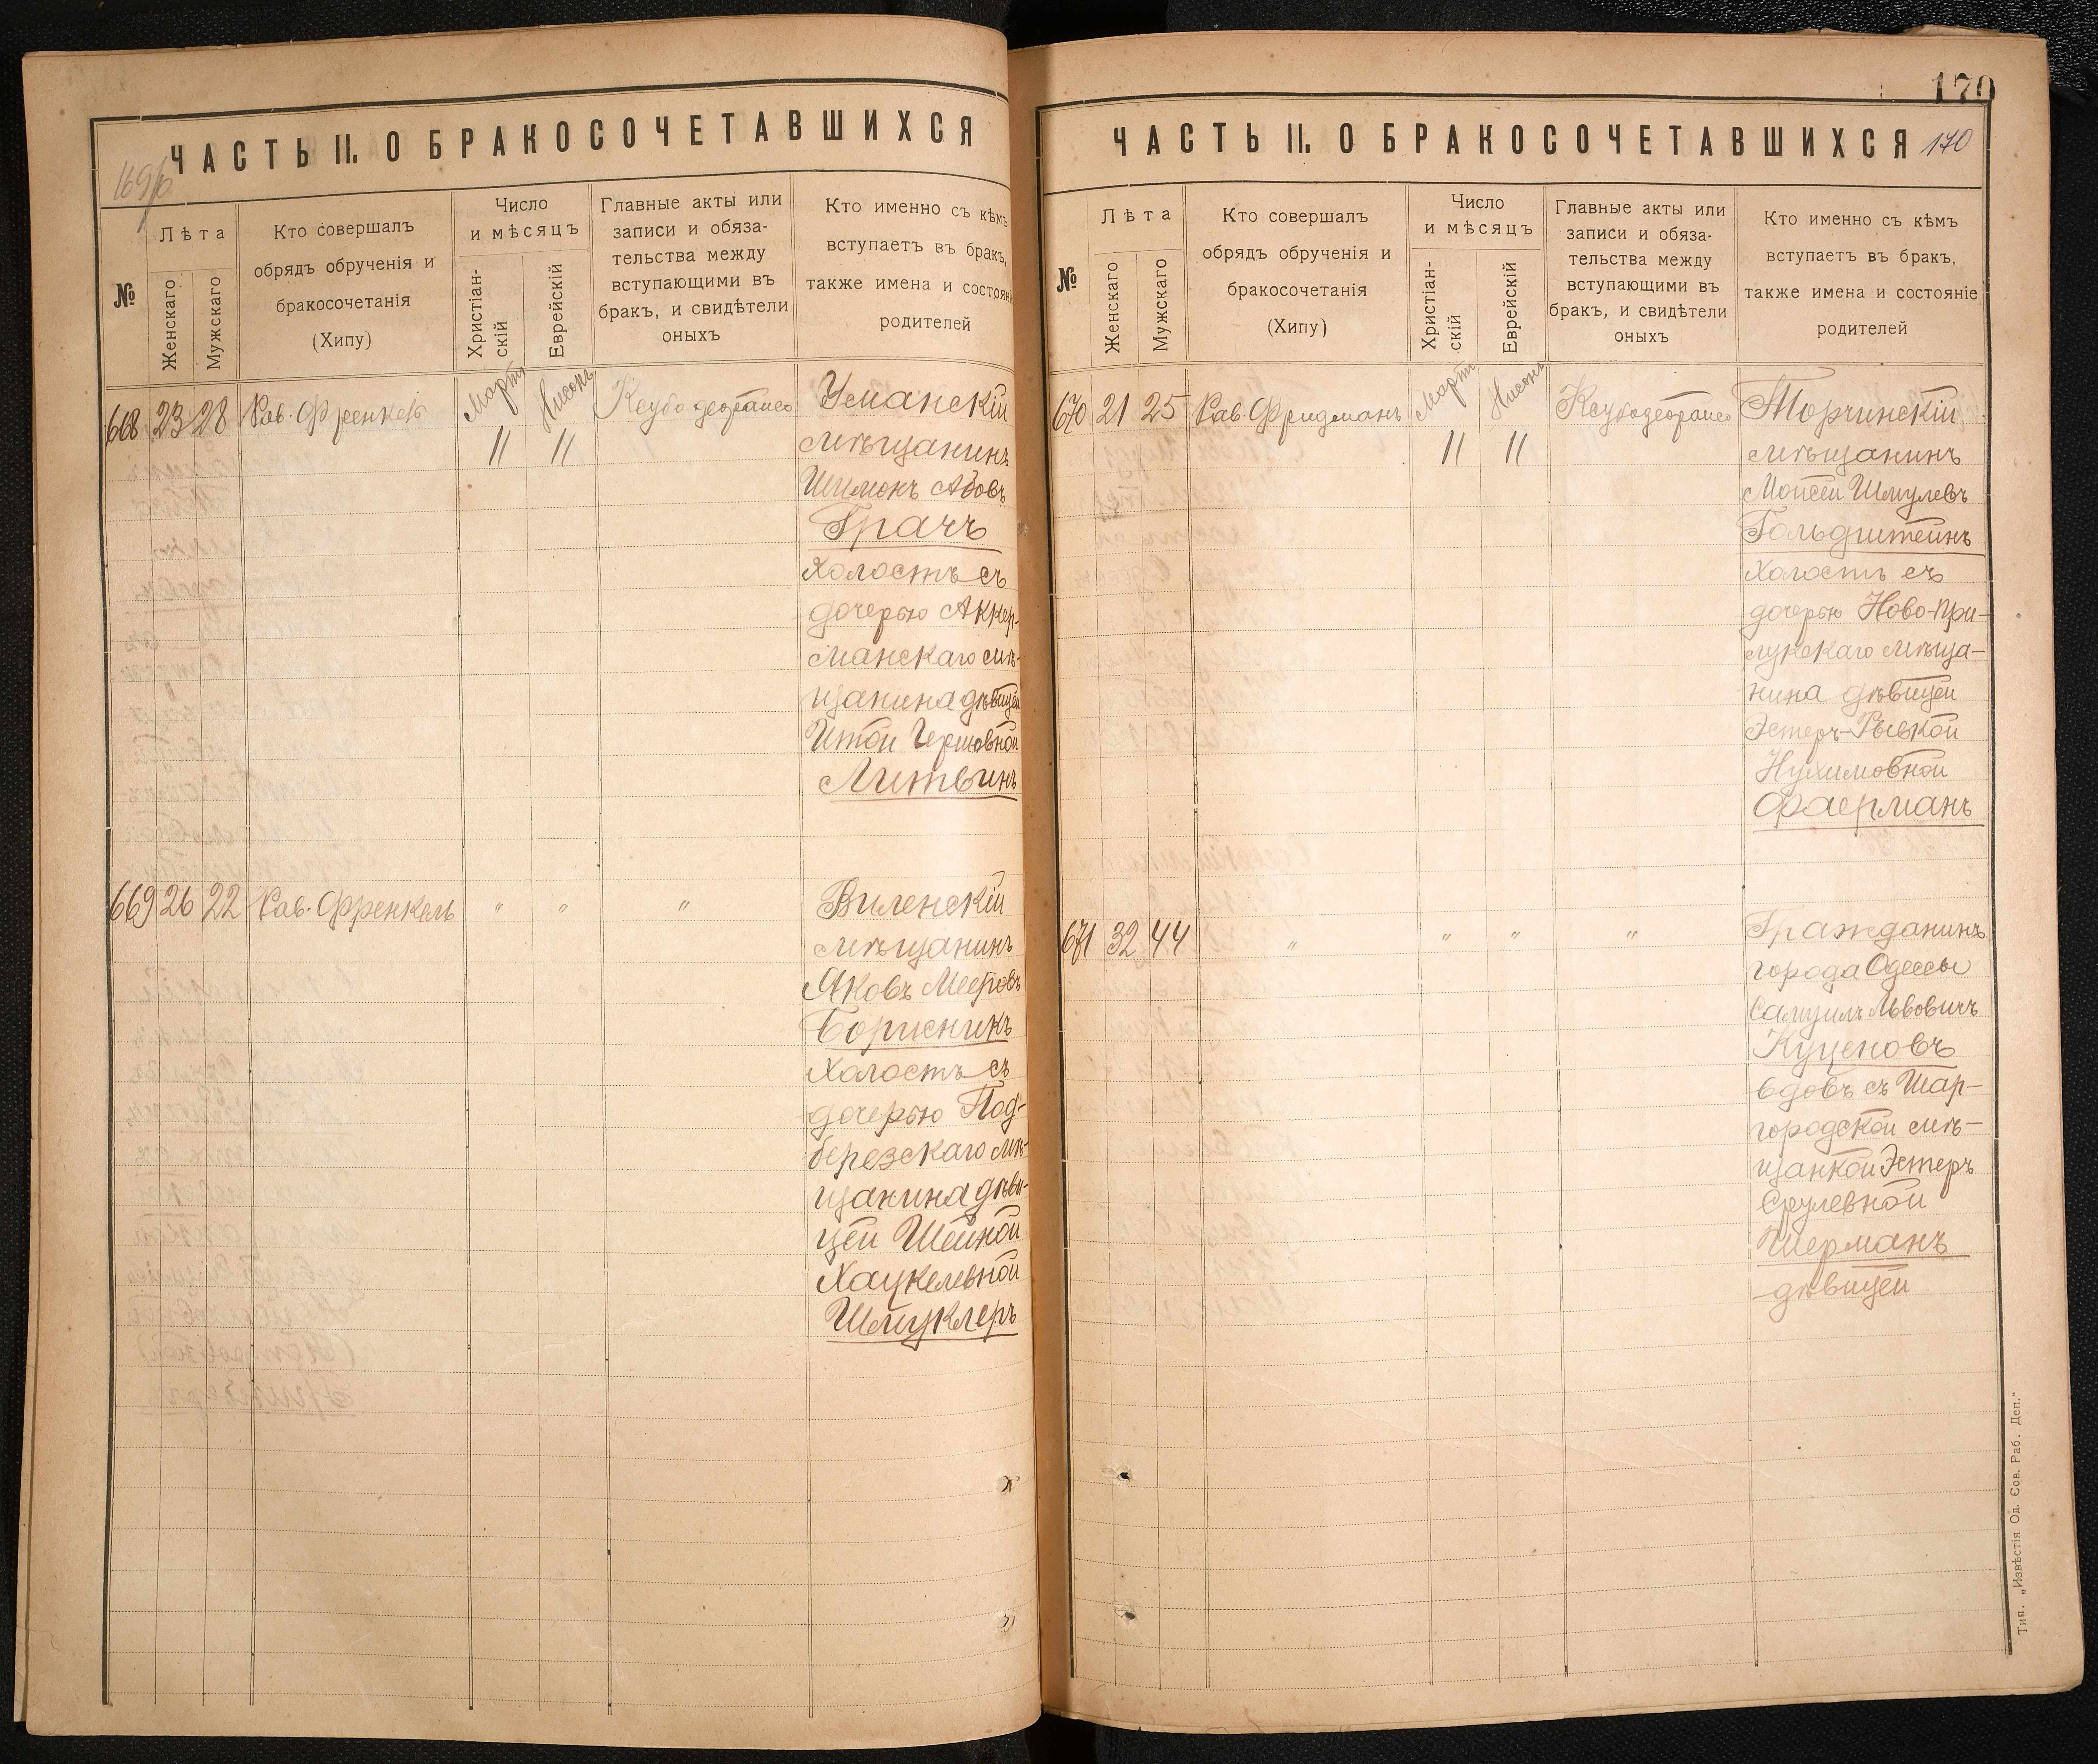 ЧАСТЬ II. О БРАКОСОЧЕТАВШИХСЯ
169/б
№
Лѣта
Женскаго
Мужскаго
Кто совершалъ
обрядъ обрученія и
бракосочетанія
(Хипу)
Число
и мѣсяцъ
Христіан-
скій
Еврейскій
Главные акты или
записи и обяза-
тельства между
вступающими въ
бракъ, и свидѣтели
оныхъ
Кто именно съ кѣмъ
вступаетъ въ бракъ,
также имена и состоян
родителей
668 23 28 Рав. Френкель Мартъ Нисонъ
11 11
Уманскій
мѣщанинъ
Шимонъ Абовъ
Грачъ
холостъ съ
дочерью Аккер-
манскаго мѣ-
щанина дѣвицей
Итой Гершовной
Литвинъ
669 26 22 Рав. Френкель " " "
Виленскій
мѣщанинъ
Яковъ Мееровъ
Борисникъ
Холостъ съ
дочерью Под-
березскаго мѣ-
щанина дѣви-
цей Шейной
Хацкелевной
Шмуклеръ
170
ЧАСТЬ II. О БРАКОСОЧЕТАВШИХСЯ 170
№
Лѣта
Женскаго
Мужскаго
Кто совершалъ
обрядъ обрученія и
бракосочетанія
(Хипу)
Число
и мѣсяцъ
Христіан-
скій
Еврейскій
Главные акты или
записи и обяза-
тельства между
вступающими въ
бракъ, и свидѣтели
оныхъ
Кто именно съ кѣмъ
вступаетъ въ бракъ,
также имена и состояніе
родителей
670 21 25 Рав. Фридманъ Мартъ Нисонъ
11 11
Торчинскій
мѣщанинъ
Моисей Шмулевъ
Гольдштейнъ
холостъ съ
дочерью Ново-При-
лукскаго мѣща-
нина дѣвицей
Эстеръ-Рывкой
Нухимовной
Фаерманъ
671 32 44 " " " "
Гражданинъ
города Одессы
Самуилъ Львовичъ
Куценовъ
вдовъ съ Шар-
городской мѣ-
щанкой Эстеръ
Срулевной
Шерманъ
дѣвицей
Тип. „Извѣстія Од. Сов. Раб. Деп."